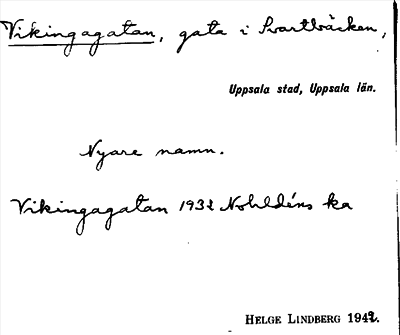 Vikingagatan, gata i Svartbäcken,
Uppsala stad, Uppsala län.
Nyare namn.
Vikingagatan 1932 Nohldéns ka
HELGE LINDBERG 1942.